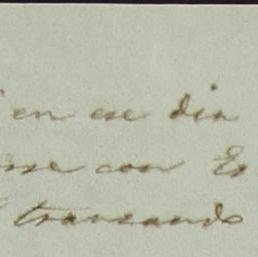 en ese dia
rse con Es
transando